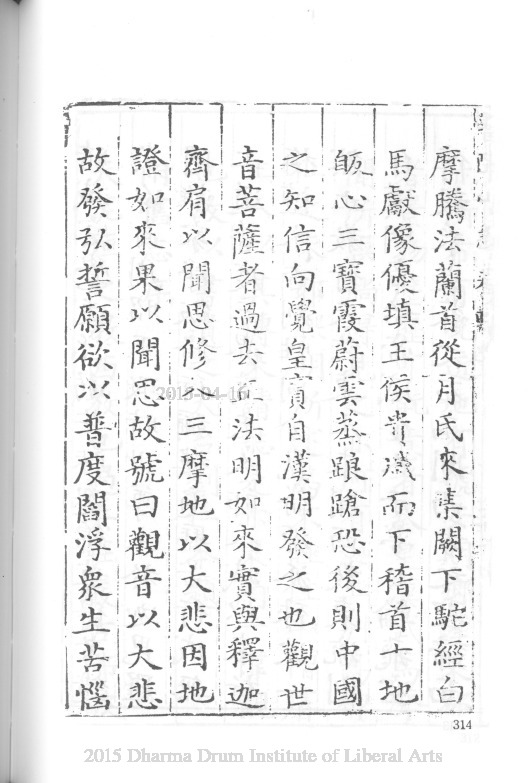 摩騰法蘭首從月氏來集闕下駝經白
馬獻像優填王侯貴戚而下稽首十地
皈心三寶霞蔚雲蒸踉蹌恐後則中國
之知信向覺皇實自漢明發之也觀世
音菩薩者過去正法明如來實與釋迦
齊肩以聞思修三摩地以大悲因地
證如來果以聞思故號曰觀音以大悲
故發弘誓願欲以普度閻浮衆生苦惱
314
2015-04-16
2015 Dharma Drum Institute of Liberal Arts